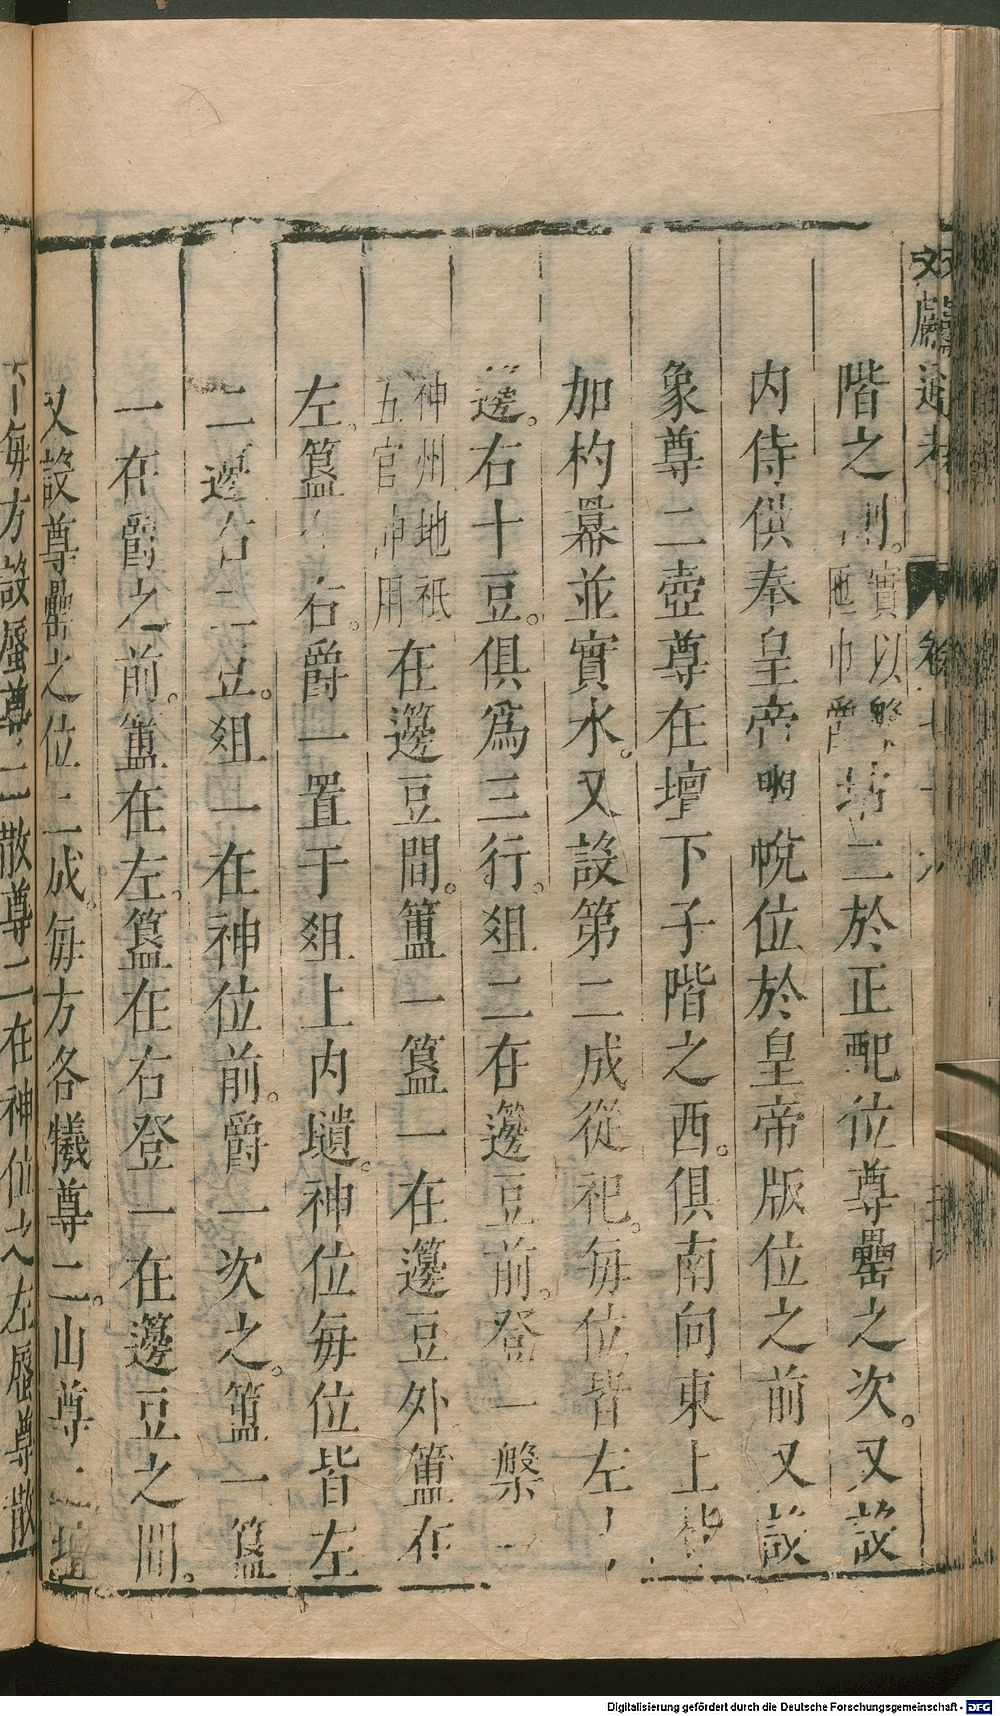 文獻通考 卷七十六
階之側。實以槃匜巾爵坫二於正配位尊罍之次。又設
内侍供奉皇帝盥帨位於皇帝版位之前又設
象尊二壺尊在壇下子階之西。俱南向東上皆
加杓羃並實水。又設第二成從祀。每位皆左十
籩。右十豆。俱爲三行。俎二在籩豆前。登一槃一
神州地祇五官帥用在籩豆間。簠一簋一在籩豆外簠在
左。簋在右。爵一置于俎上内壝。神位每位皆左
二籩右二豆。俎一在神位前。爵一次之。簠一簋
一在爵之前。簠在左。簋在右登一在籩豆之間。
又設尊罍之位二成。每方各犧尊二。山尊二壇
下每方設蜃尊二散尊二在神位之左蜃尊散
Digitalisierung gefördert durch die Deutsche Forschungsgemeinschaft - DFG